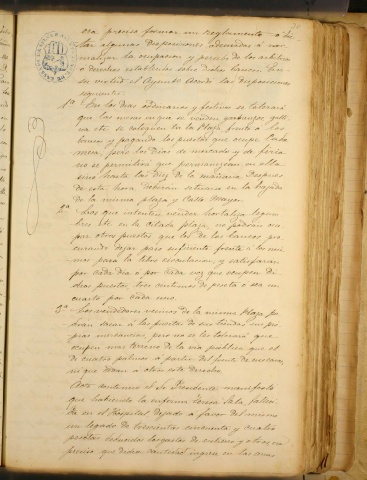 era preciso formar un Reglamento o dic-
tar algunas disposiciones adecuadas a nor-
malizar la ocupacion y permiso de los arbitrios
o derechos establecidos sobre dichos
el Ayunto acordó las disposiciones
siguientes:
1ª En los dias ordinarios y festivos se tolerará
que las mesas en que se venden garbanzos
etc. se coloquen en la Plaza frente a los
bancos y pagando los puestos que ocupe
pero los Dias de mercado y de feria
no se permitirá que permanezcan en ella
sino hasta las Diez de la mañana. Despues
de esta hora deberán situarse en la bajada
de la misma plaza y Calle Mayor.
2ª Los que intenten vender hortaliza legum
bres etc. en la citada plaza, no podran ocu-
par otros puestos que los de los bancos pro-
curando dejar paso suficiente frente a los mis-
mos para la libre circulacion, y satisfaran
por cada dia o por cada vez que ocupen di-
chos puestos, tres centimos de peseta o sea un
cuarto por cada uno.
3ª Los vendedores vecinos de la misma Plaza po-
dran sacar a las puertas de sus tiendas sus pro-
pias mercancias, pero no se les tolerará que
ocupen mas terreno de la via publica que el
de cuatro palmos a partir del frente de
ni que dañen a otros este derecho
Acto continuo el Sr Presidente manifestó
que habiendo la enferma Teresa Sala falleci-
da en el Hospital dejado a favor del mismo
un legado de trescientas cincuenta y cuatro
pesetas deducidos los gastos de entierro y otros, era
preciso que dicha cantidad ingrese en las arcas